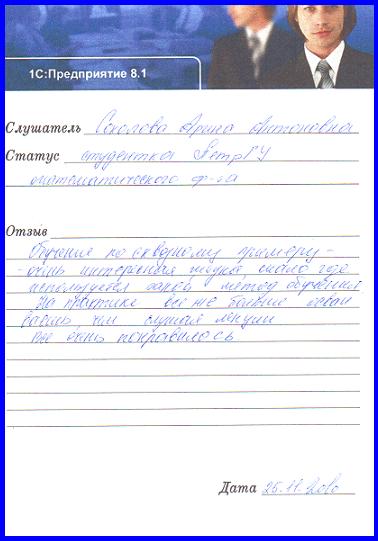 1С:Предприятие 8.1
Слушатель Соколова Арина Антоновна
Статус студентка ПетрГУ
математического ф-та
Отзыв
Обучение по сквозному примеру -
- очень интересная , мало где
используется такой метод обучения
На практике все же больше осваи
ваешь, чем слушая лекции
Все очень понравилось
Дата 25.11.2010